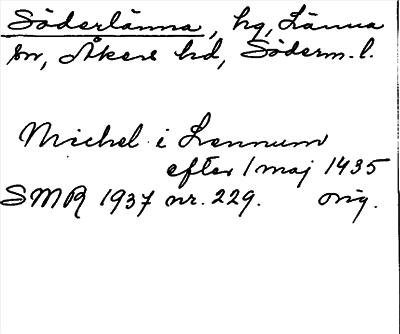 Söderlänna, hg, Länna
sn, Åkers hd, Söderm. l.
Michel i Lennum
efter 1 maj 1435
SMR 1937 nr. 229. orig.